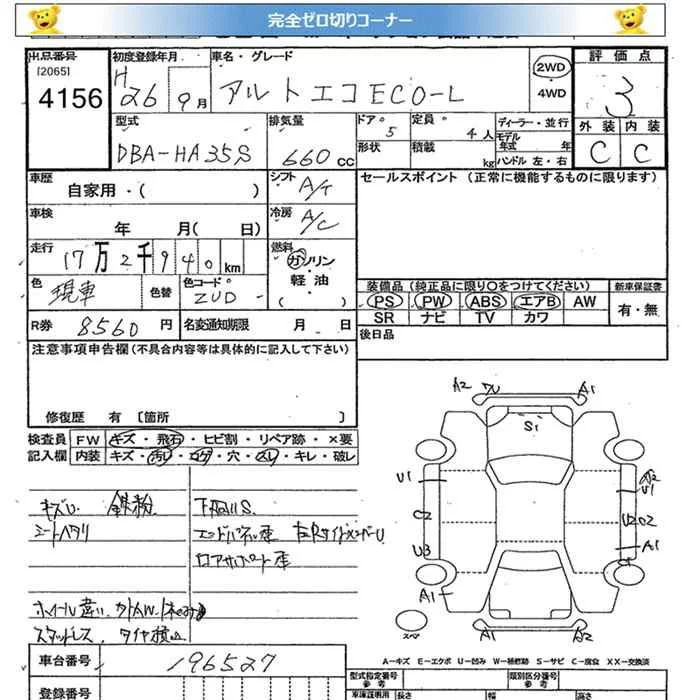 完全ゼロ切りコーナー
出品番号
[2065]
4156
初度登録年月
H 26 9月
車名・グレード
アルト エコECO-L
2WD
4WD
評価点
3
外装 内装
C C
型式
DBA-HA35S
排気量
660cc
ドア
5
定員
4人
ディーラー・並行
モデル年式 年
形状
積載
kg
ハンドル 左・右
車歴
自家用・( )
シフト
A/T
セールスポイント (正常に機能するものに限ります)
車検
年 月( 日)
冷房
A/C
走行
17万2千940km
燃料
ガソリン
・
軽油
・
( )
色
現車
色替
色コード
ZUD
装備品 (純正品に限り○をつけてください)
PS PW ABS エアB AW
SR ナビ TV カワ
新車保証書
有・無
R券 8560円
名変通知期限 月 日
後日品
注意事項申告欄(不具合内容等は具体的に記入して下さい)
修復歴 有 [箇所 ]
検査員記入欄
FW キズ・飛石・ヒビ割・リペア跡・×要
内装 キズ・汚レ・コゲ・穴・スレ・キレ・破レ
キズU 鉄粉
シートヘタリ
下回りS
ホイール違い
スタッドレス タイヤ積込
A2 A1
S1
U1
U1
C2
U2C2
U3
A1
A1
スペア
A1 A2
A-キズ E-エクボ U-凹み W-補修跡 S-サビ C-腐食 XX-交換済
車台番号
196527
登録番号
型式指定番号
参考
類別区分番号
参考
車庫証明用
長さ
幅
高さ